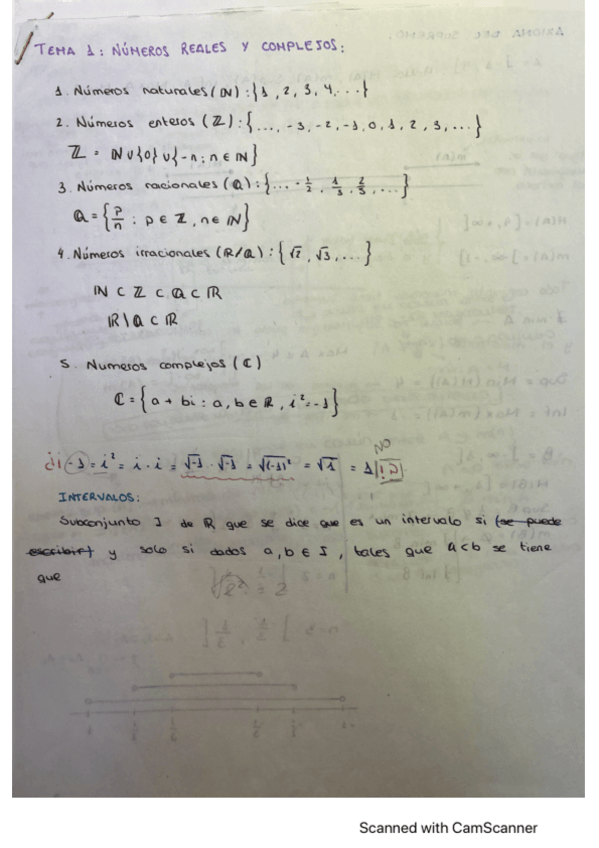 TEMA 1: NÚMEROS REALES Y COMPLEJOS:
1. Números naturales (ℕ): {1, 2, 3, 4, ...}
2. Números enteros (ℤ): {..., -3, -2, -1, 0, 1, 2, 3, ...}
ℤ = ℕ ∪ {0} ∪ {-n : n ∈ ℕ}
3. Números racionales (ℚ): {... -1/2, 1/3, 2/5, ...}
ℚ = {p/n : p ∈ ℤ, n ∈ ℕ}
4. Números irracionales (ℝ/ℚ): {√2, √3, ...}
ℕ ⊂ ℤ ⊂ ℚ ⊂ ℝ
ℝ\ℚ ⊂ ℝ
5. Numeros complejos (ℂ)
ℂ = {a + bi : a, b ∈ ℝ, i² = -1}
NO
-1 = i² = i · i = √-1 · √-1 = √(-1)² = √1 = 1 !?
INTERVALOS:
Subconjunto I de ℝ que se dice que es un intervalo si (se puede
escribir) y solo si dados a, b ∈ I, tales que a<b se tiene
que
Scanned with CamScanner